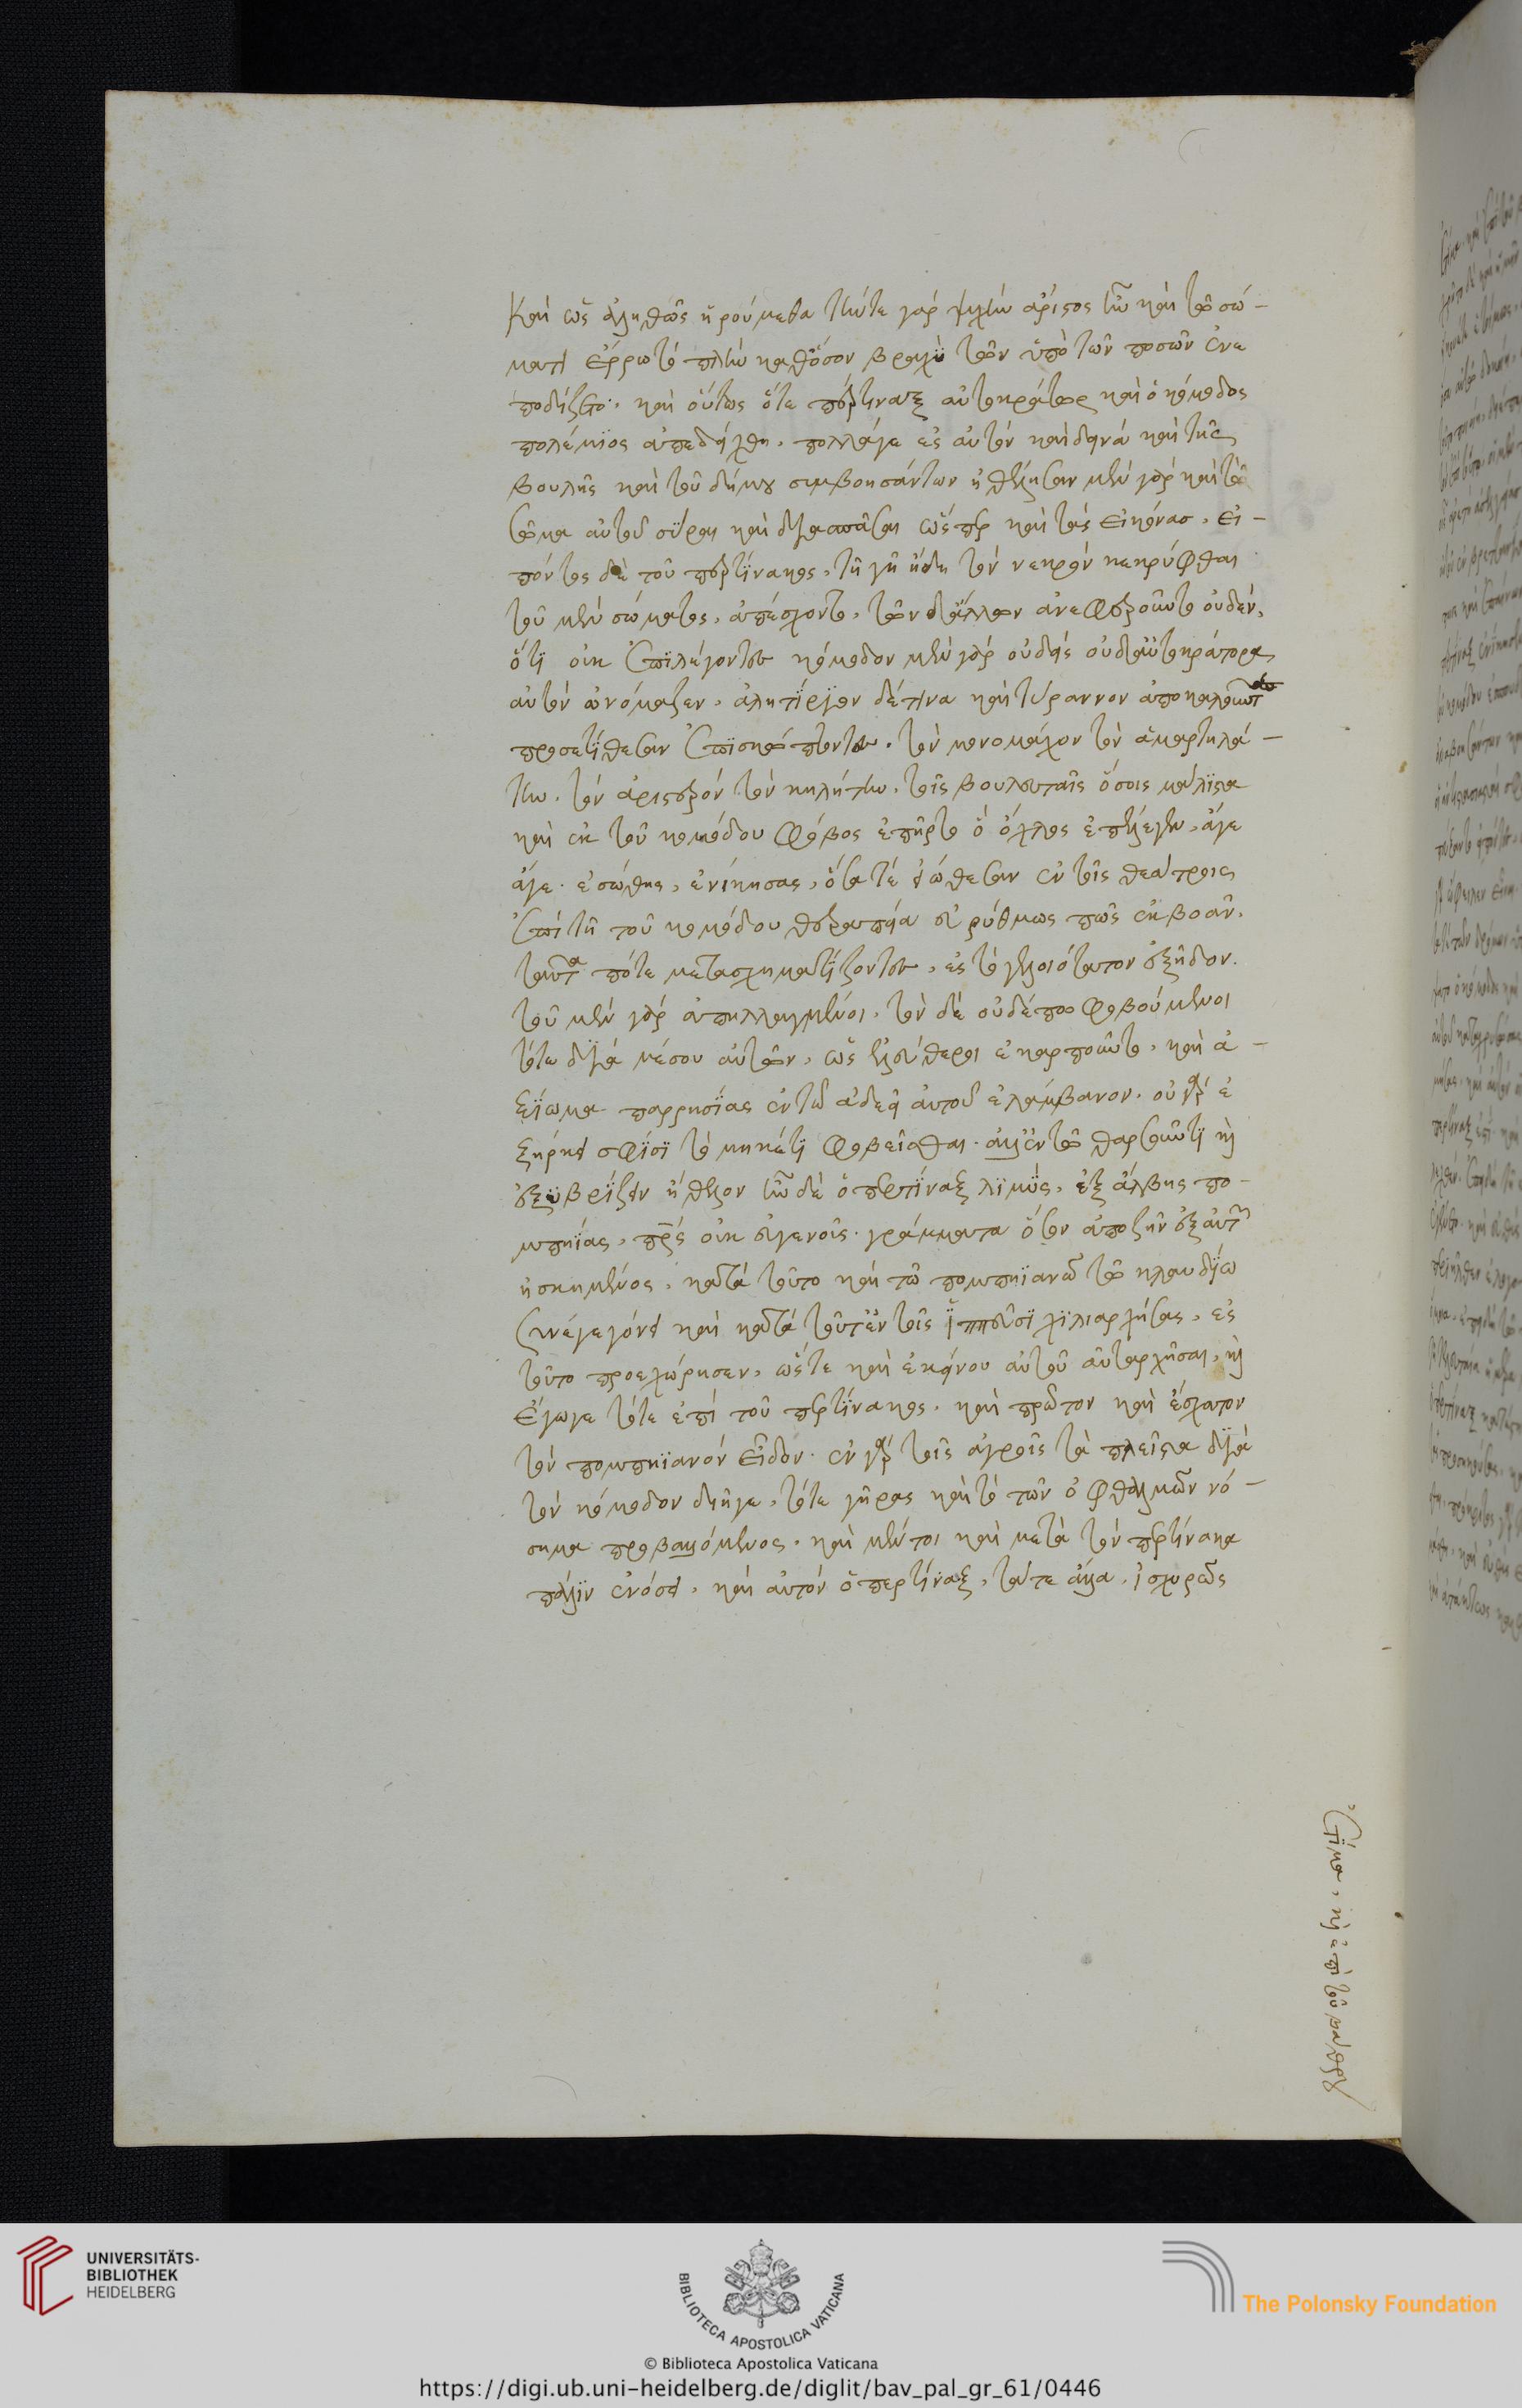 Καὶ ὡς ἀληθῶς ἡρούμεθα τήν τε γάρ ψυχήν ἄριστος ἦν καὶ τῷ σώ-
ματι ἔρρωτό πλήν καθόσον βραχὺ τῶν ὑπὸ τῶν ποσῶν ἐνε
ποδίζετο· καὶ οὕτως ὅτε πέρτιναξ αὐτοκράτωρ καὶ ὁ κόμοδος
πολέμιος ἀπεδείχθη, πολλάγε ἐς αὐτόν καὶ δεινά καὶ τῆς
βουλῆς καὶ τοῦ δήμου συμβοησάντων ἠθέλησαν μὲν γάρ καὶ τὸ
σῶμα αὐτοῦ σῦραι καὶ διασπᾶσαι ὥσπερ καὶ τάς εἰκόνας, εἰ-
πόντος δὲ τοῦ περτίνακος, τῆ γῆ ἤδη τόν νεκρόν κεκρύφθαι
τοῦ μέν σώματος, ἀπέσχοντο, τῶν διἄλλων ἀνεφεροῦντο οὐδέν,
ὅτι οὐκ ἐπιλέγοντες κόμοδον μέν γάρ οὐδείς οὐδαὐτοκράτορα,
αὐτόν ὠνόμαζεν, ἀλητίριον δέτινα καὶ τύραννον ἀποκαλοῦντες
προσετίθεσαν ἐπισκώπτοντες. τόν μονομάχον τόν ἁμαρτηλά-
την. τόν ἀριστερόν τόν κηλήτην. τοῖς βουλευταῖς ὅσοις μάλιστα
καὶ ἐκ τοῦ κομόδου φόβος ἐπῆρτο ὁ ὄχλος ἐπέλεγεν, ἄγε
ἄγε. ἐσώθης, ἐνίκησας, ὅσα τέ εἰώθεσαν ἐν τοῖς θεάτροις
ἐπί τῆ τοῦ κομόδου θεραπεία εὐρύθμως πῶς ἐκβοᾶν,
ταῦτα πότε μετασχηματίζοντες, ἐς τό γελοιότατον ἐξῆδον.
τοῦ μέν γάρ ἀπηλλαγμένοι, τόν δέ οὐδέπω φοβούμενοι
τότε διά μέσου αὐτῶν, ὡς ἐλεύθεροι ἐκαρποῦντο, καὶ ἀ-
ξίωμα παρρησίας ἐντῶ ἀδεεῖ ἀυτοῦ ἐλάμβανον. οὐ γάρ ἐ
ξήρκει σφίσι τό μηκέτι φοβεῖσθαι. ἀλλ'ἐντῶ θαρσοῦντι κὶ
ἐξυβρίζειν ἤθελον ἦν δὲ ὁ περτίναξ λιμύς, ἐξ ἄλβης πο-
μπηίας, πρς οὐκ εὐγενοῖς. γράμματα ὅσον ἀποζῆν ἐξαὐτῶν
ἠσκημένος. κατά τοῦτο καὶ τῶ πομπηιανῶ τῶ κλαυδίω
συνέγεγόνει καὶ κατά τοῦτ'ἐν τοῖς ἱππεῦσι χιλιαρχήσας, ἐς
τοῦτο προεχώρησεν, ὥστε καὶ ἐκείνου αὐτοῦ αὐταρχῆσαι, κὶ
ἔγωγε τότε ἐπί τοῦ περτίνακος. καὶ πρῶτον καὶ ἔσχατον
τόν πομπηιανόν εἶδον. ἐν γάρ τοῖς ἀγροῖς τὰ πλεῖστα διά
τόν κόμοδον διῆγε, τότε γῆρας καὶ τό τῶν ὀφθαλμῶν νό-
σημα προβαλλόμενος. καὶ μέντοι καὶ μετὰ τόν περτίνακα
πάλιν ἐνόσει. καὶ αὐτόν ὁ περτίναξ, τάτε ἄλλα, ἰσχυρῶς
ἐτίμα, κὶ ἐπὶ τοῦ βάθρου
UNIVERSITÄTS-
BIBLIOTHEK
HEIDELBERG
BIBLIOTECA APOSTOLICA VATICANA
The Polonsky Foundation
© Biblioteca Apostolica Vaticana
https://digi.ub.uni-heidelberg.de/diglit/bav_pal_gr_61/0446